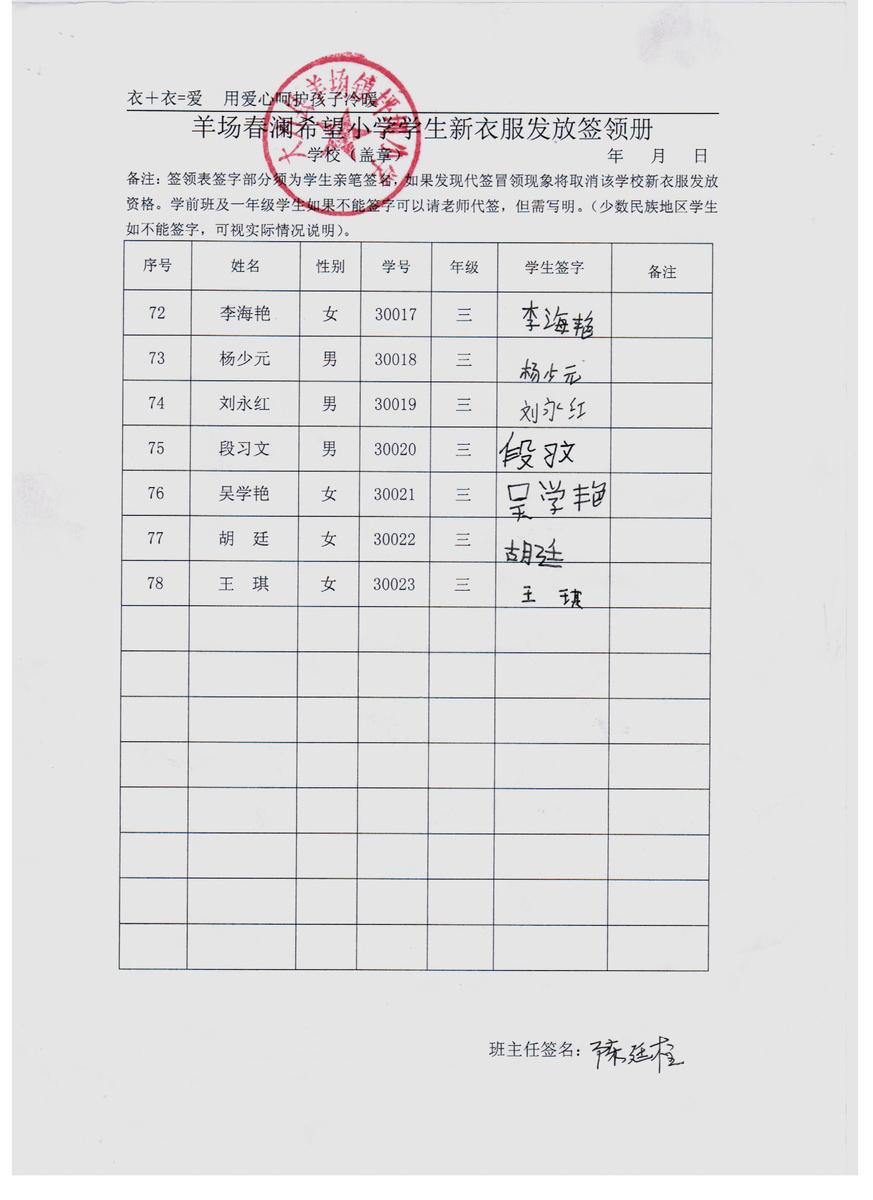 衣＋衣=爱　用爱心呵护孩子冷暖
羊场春澜希望小学学生新衣服发放签领册
学校（盖章）　年　月　日
备注：签领表签字部分须为学生亲笔签名，如果发现代签冒领现象将取消该学校新衣服发放
资格。学前班及一年级学生如果不能签字可以请老师代签，但需写明。（少数民族地区学生
如不能签字，可视实际情况说明）。
序号 姓名 性别 学号 年级 学生签字 备注
72 李海艳 女 30017 三 李海艳
73 杨少元 男 30018 三 杨少元
74 刘永红 男 30019 三 刘永红
75 段习文 男 30020 三 段习文
76 吴学艳 女 30021 三 吴学艳
77 胡　廷 女 30022 三 胡廷
78 王　琪 女 30023 三 王　琪
班主任签名：陈廷